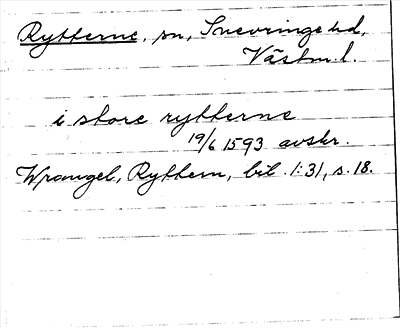 Rytterne, sn, Snevringe hd,
Västm.l.
i store rytterne
19/6 1593 avskr.
Wrangel, Ryttern, bil. 1:31, s. 18.